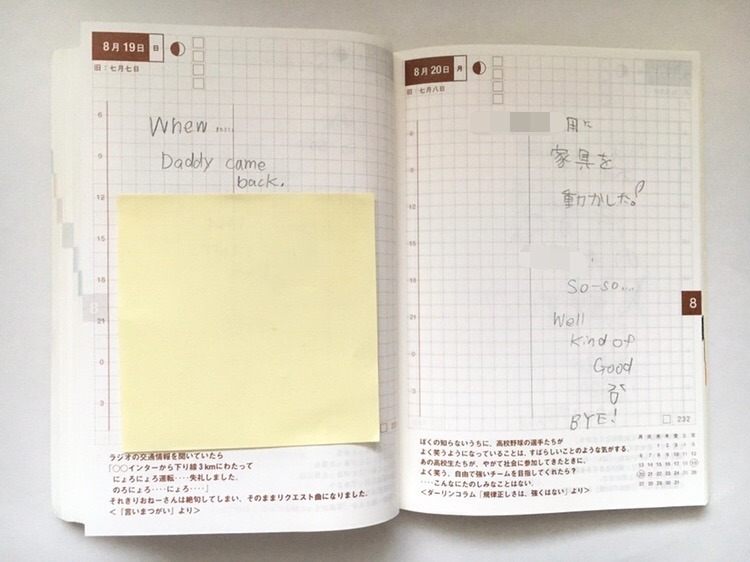 8月19日 日
旧:七月七日
6
9
12
15
18
21
0
3
When....
Daddy came
back.
8
ラジオの交通情報を聞いていたら
「○○インターから下り線3kmにわたって
にょろにょろ運転‥‥失礼しました。
のろにょろ‥‥にょろ‥‥」
それきりおねーさんは絶句してしまい、そのままリクエスト曲になりました。
<『言いまつがい』より>
8月20日 月
旧:七月八日
6
9
12
15
18
21
0
3
用に
家具を
動かした。
So-so...
Well
Kind of
Good
BYE!
8
232
ぼくの知らないうちに、高校野球の選手たちが
よく笑うようになっていることは、すばらしいことのような気がする。
あの高校生たちが、やがて社会に参加してきたときに、
よく笑う、自由で強いチームを目指してくれたら?
‥‥こんなにたのしみなことはない。
<ダーリンコラム「規律正しさは、強くはない」より>
月 火 水 木 金 土 日
1 2 3 4 5
6 7 8 9 10 11 12
13 14 15 16 17 18 19
20 21 22 23 24 25 26
27 28 29 30 31